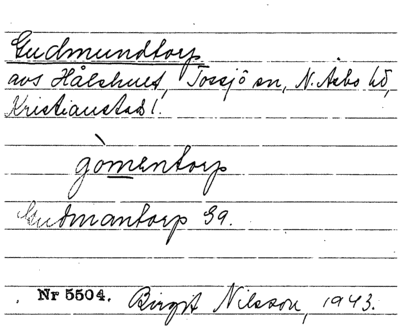 Gudmundtorp
avs Hålshult, Tossjö sn, N. Åsbo hd,
Kristianstads l.
gòmentorp
Gudmantorp Ga.
Nr 5504. Birgit Nilsson, 1943.